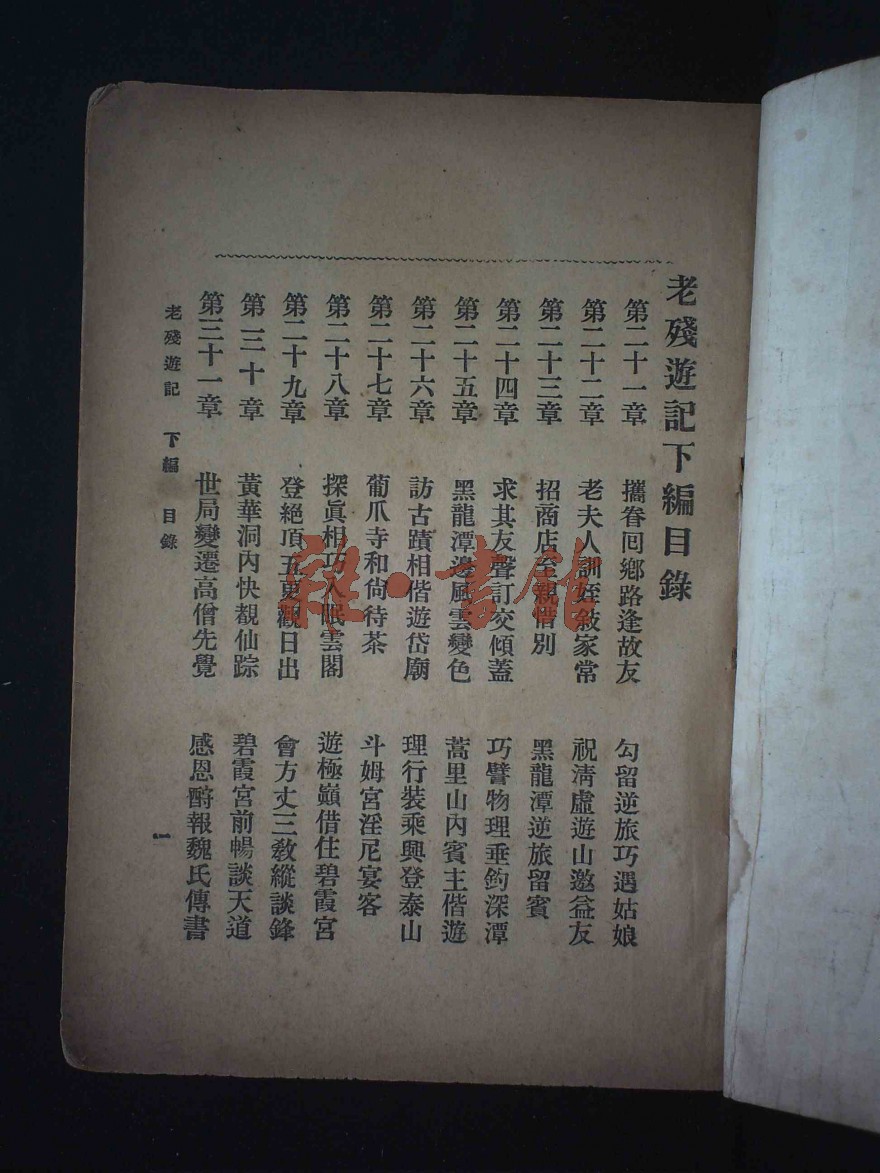 老殘遊記下編目錄
第二十一章 攜眷囘鄉路逢故友 勾留逆旅巧遇姑娘
第二十二章 老夫人訓姪敍家常 祝淸虛遊山邀益友
第二十三章 招商店至親惜別 黑龍潭逆旅留賓
第二十四章 求其友聲訂交傾蓋 巧譬物理垂釣深潭
第二十五章 黑龍潭邊風雲變色 蒿里山內賓主偕遊
第二十六章 訪古蹟相偕遊岱廟 理行裝乘興登泰山
第二十七章 葡爪寺和尙待茶 斗姆宮淫尼宴客
第二十八章 探眞相巧入眠雲閣 遊極巔借住碧霞宮
第二十九章 登絕頂五更觀日出 會方丈三敎縱談鋒
第三十章 黃華洞內快覩仙踪 碧霞宮前暢談天道
第三十一章 世局變遷高僧先覺 感恩酹報魏氏傳書
老殘遊記 下編 目錄 一
雜·書館